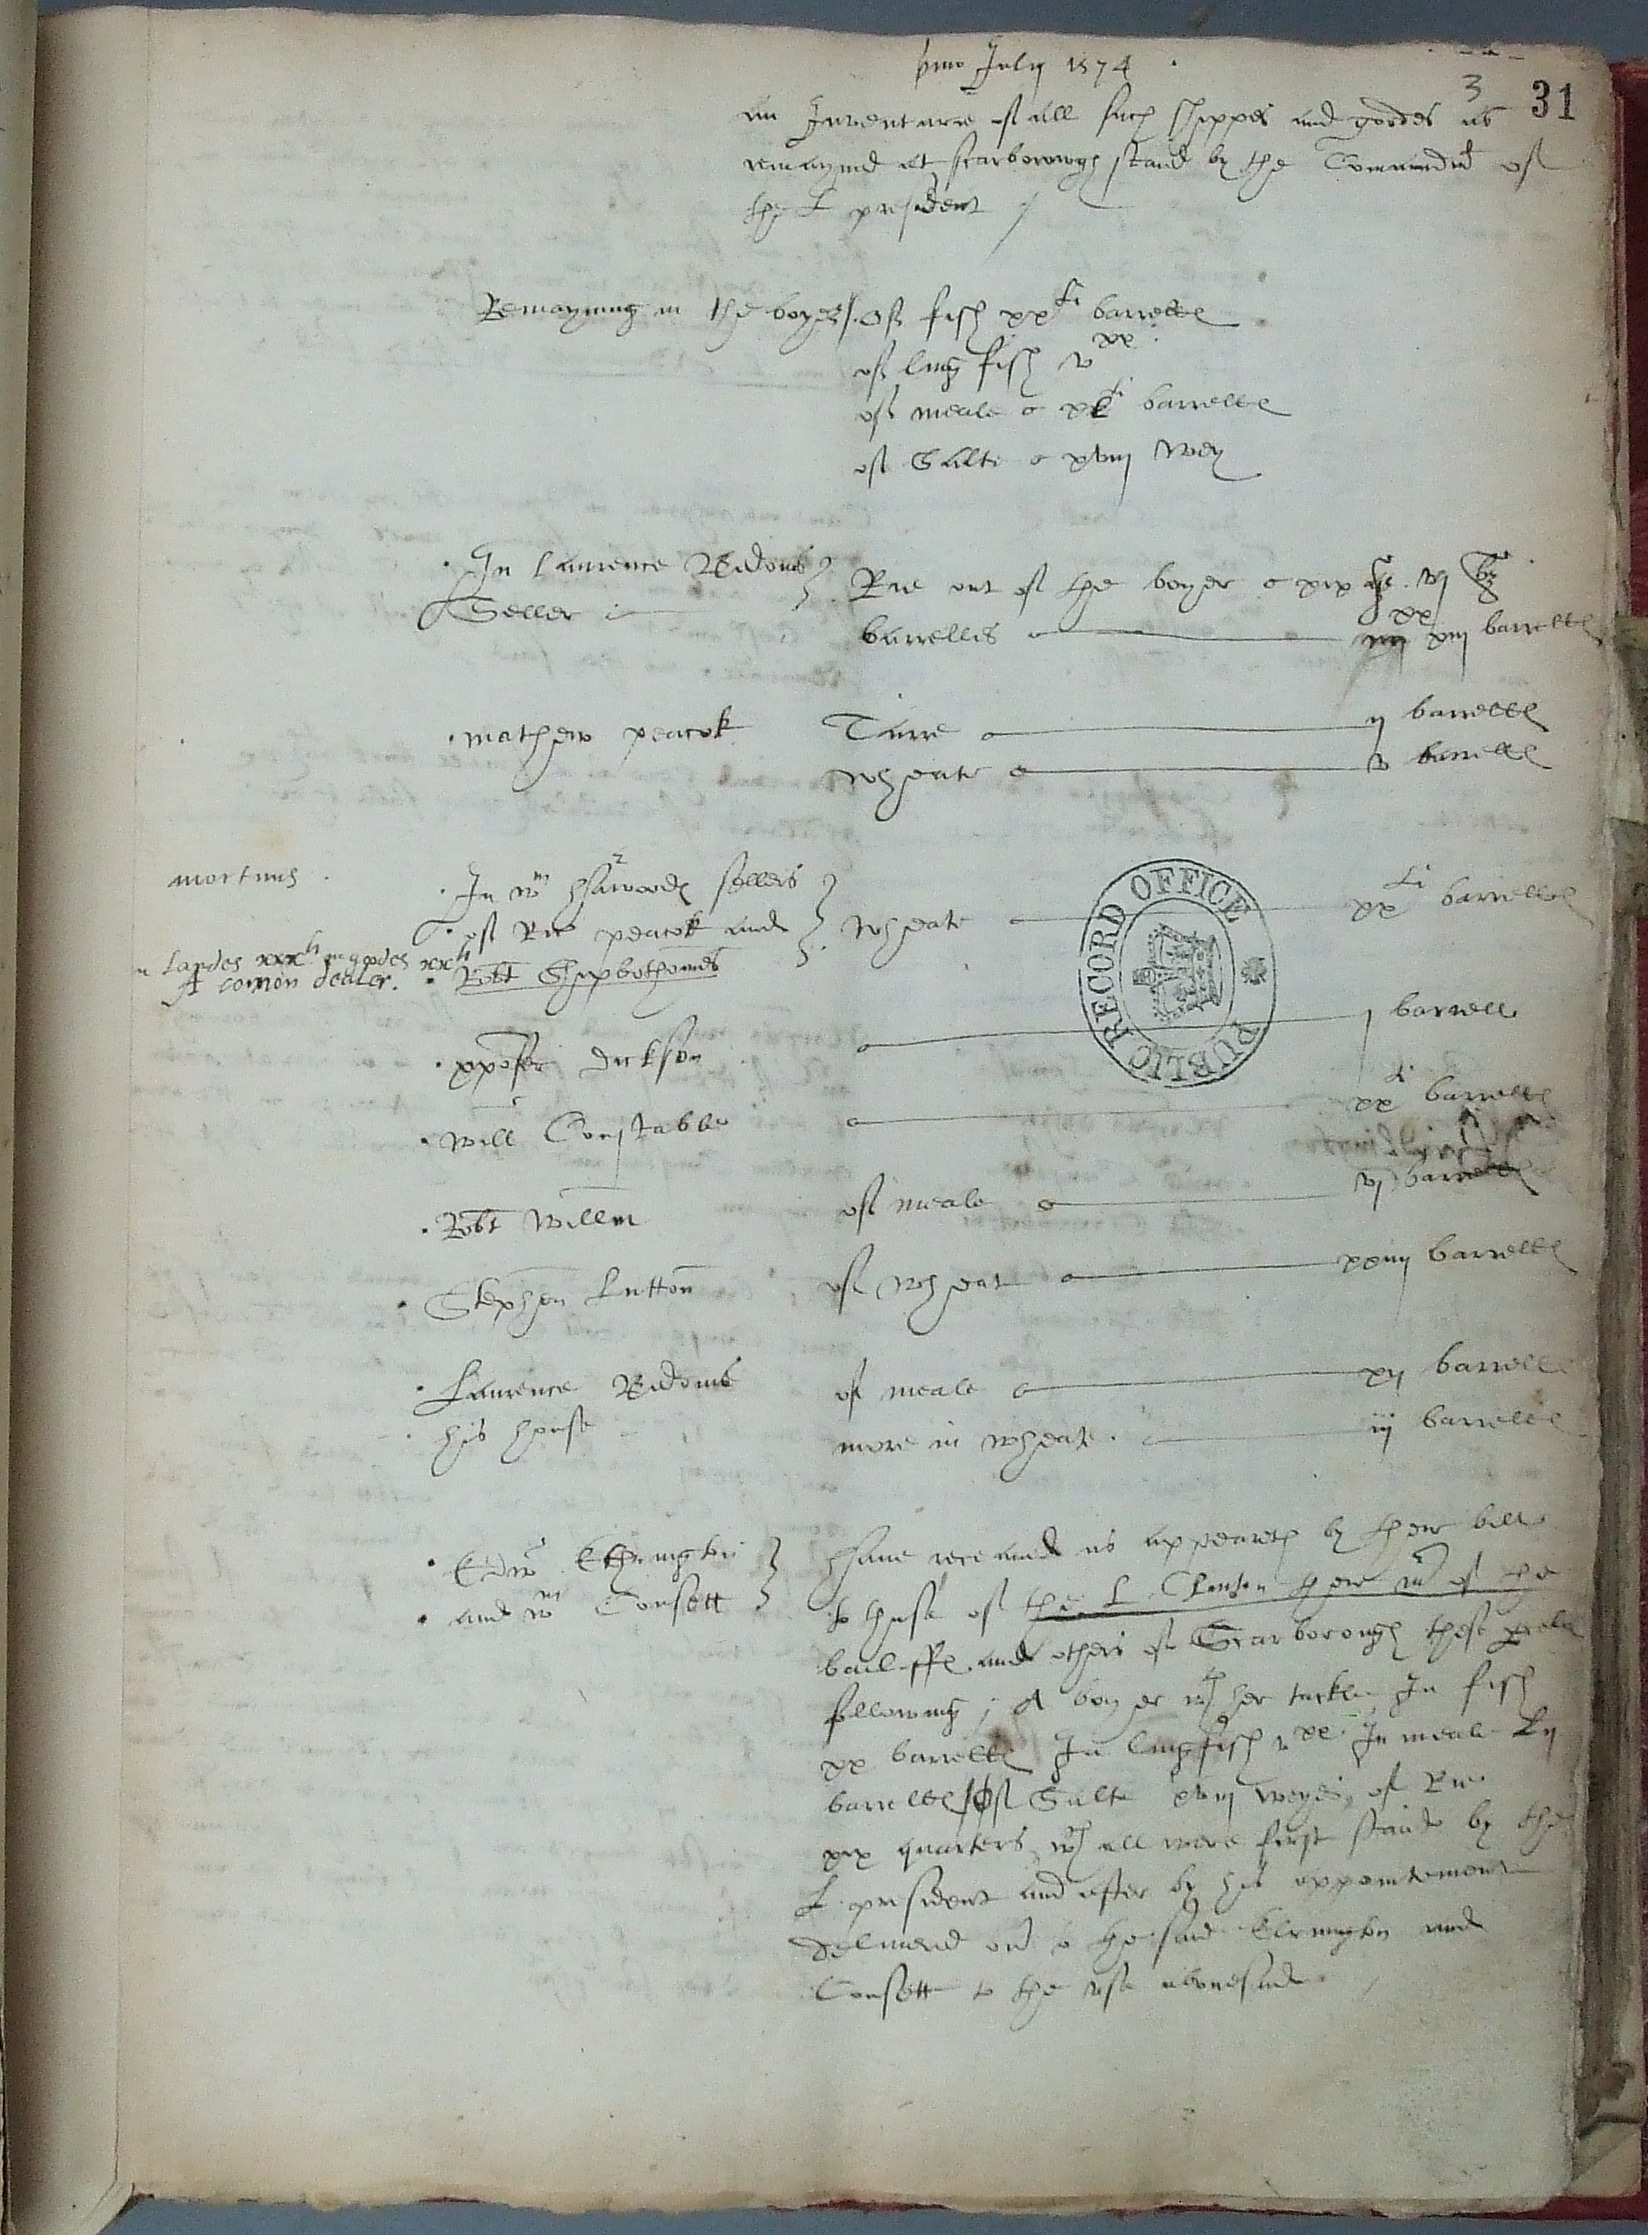 pmo July 1574
3
31
an Inventarie of all such shippes and goodes as
remaynid at Scarborowgh staied by the Comaundmt of
the L president /
Remayning in the boyer /. Of fish xxti barrells
of ling fish v xx
of meale o barrells
of Salte o xviij wey
In Laurence Seller
Rie out of the boyer o xix qrs. vj bz
barrellis iiij xx xiij barrells
mathew peacok Tarre ij barrells
wheate v barrells
mortuus.
In wm Harwoods sellers
of Ric peacok and
Robt Shipbothomes
wheate xxti barrells
in landes xxxli in goodes xxli
A comon dealer.
xpofer dickson j barrell
Will Constable xxti barrells
Robt Willm of meale vj barrells
Stephen Lutton of wheat xxiiij barrells
Laurence of meale xij barrells
his house more in wheate. iij barrells
Edw Ethrington
and wm Consett
Haue receaued as appeareth by their bill
to thuse of the L Clinton their mr of the
bailiffs and others of Scarborough these
following ; A boyer wth her tackle In fish
xx barrells In lingfish v xx In meale
barrells / Of Salte xviij weyes, of Rie
xix quarters wch all were first staied by the
L president and after by his appointement
deliuered to the said and
Consett to the vse abouesaid /
PUBLIC RECORD OFFICE